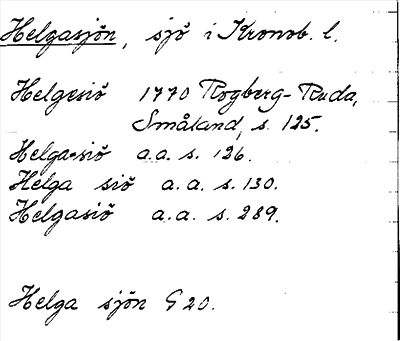 Helgasjön, sjö i Kronob. l.
Helgesiö 1770 Rogberg-Ruda,
Småland, s. 125.
Helga-siö a.a. s. 126.
Helga siö a.a. s. 130.
Helgasiö a.a. s. 289.
Helga sjön G 20.